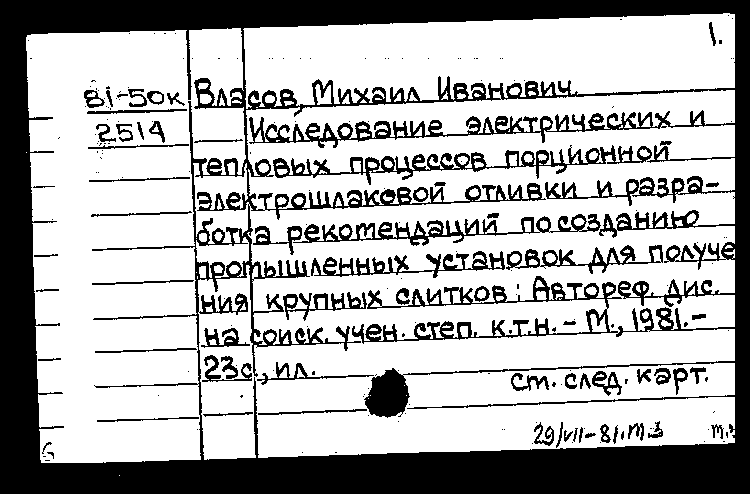 1.
81-50к Власов, Михаил Иванович.
2514 Исследование электрических и
тепловых процессов порционной
электрошлаковой отливки и разра-
ботка рекомендаций по созданию
промышленных установок для получе
ния крупных слитков: Автореф. дис.
на соиск. учен. степ. к.т.н. - М., 1981.-
23с., ил.
См. след. карт.
29/VII-81.